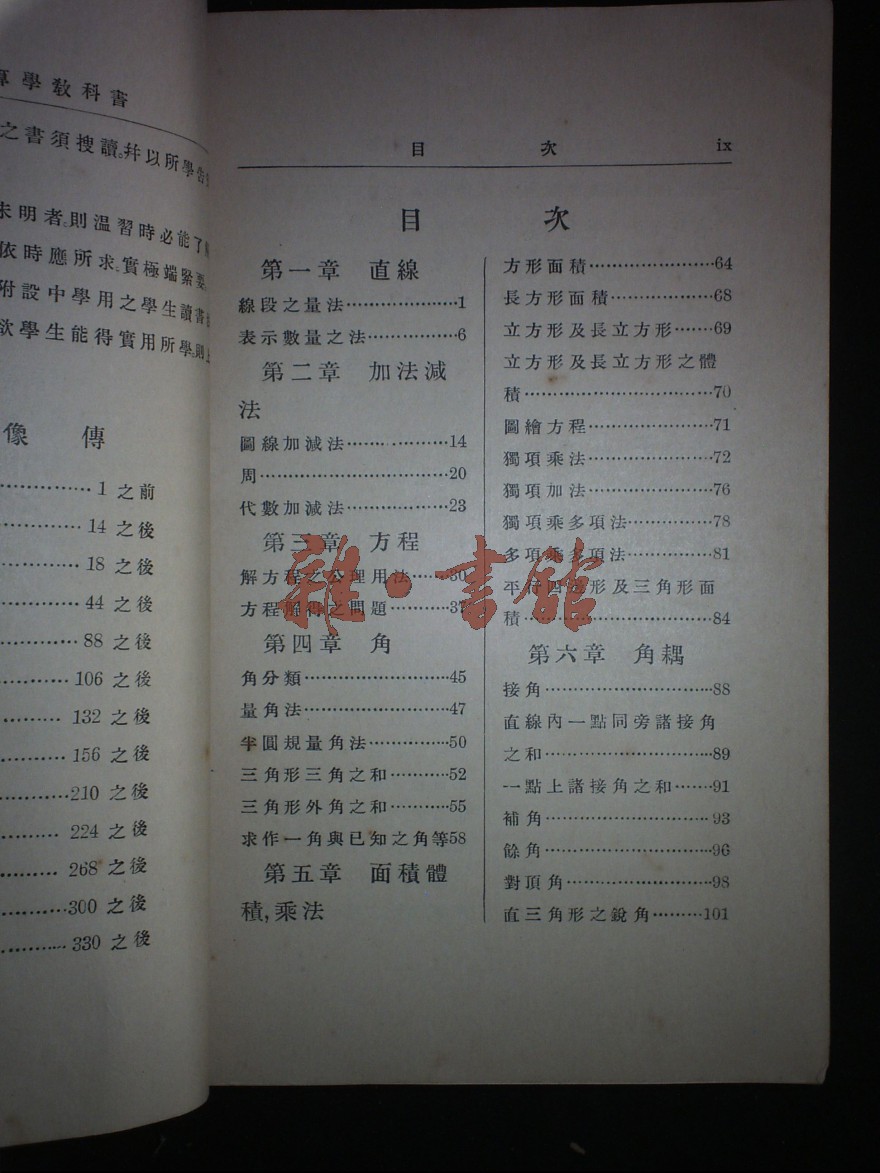 算學教科書
之書須搜讀。幷以所學告
未明者。則溫習時必能了
依時應所求。實極端緊要。
附設中學用之學生讀書
欲學生能得實用所學。則
像 傳
1 之前
14 之後
18 之後
44 之後
88 之後
106 之後
132 之後
156 之後
210 之後
224 之後
268 之後
300 之後
330 之後
目 次 ix
目 次
第一章 直線
線段之量法………………1
表示數量之法……………6
第二章 加法減
法
圖線加減法………………14
周…………………………20
代數加減法………………23
第三章 方程
解方程之公理用法……30
方程解得之問題………37
第四章 角
角分類……………………45
量角法……………………47
半圓規量角法……………50
三角形三角之和…………52
三角形外角之和…………55
求作一角與已知之角等58
第五章 面積體
積,乘法
方形面積…………………64
長方形面積………………68
立方形及長立方形………69
立方形及長立方形之體
積…………………………70
圖繪方程…………………71
獨項乘法…………………72
獨項加法…………………76
獨項乘多項法……………78
多項乘多項法……………81
平行四邊形及三角形面
積…………………………84
第六章 角耦
接角………………………88
直線內一點同旁諸接角
之和………………………89
一點上諸接角之和………91
補角………………………93
餘角………………………96
對頂角……………………98
直三角形之銳角………101
雜·書館